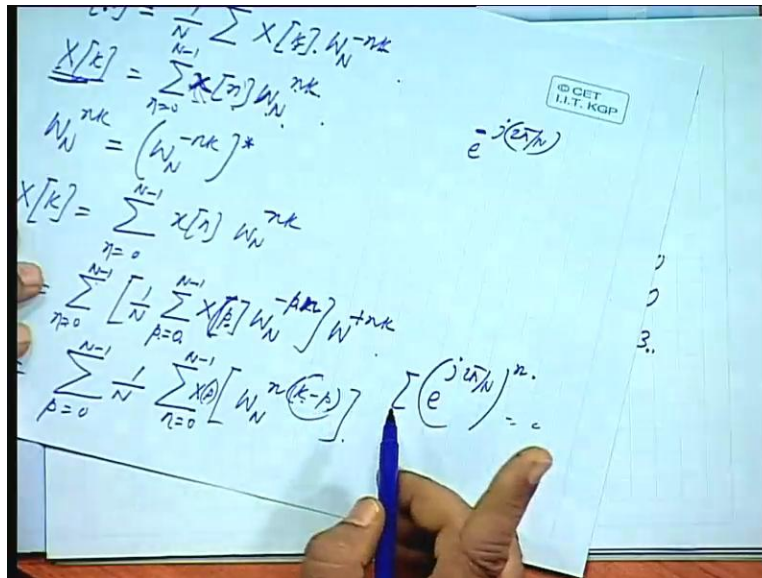 = 1/N ∑ X[k]. W_N^{-nk}
X[k] = ∑_{n=0}^{N-1} x[n] W_N^{nk}
© CET
I.I.T. KGP
W_N^{nk} = (W_N^{-nk})*
e^{-j(2π/N)}
X[k] = ∑_{n=0}^{N-1} x[n] W_N^{nk}
= ∑_{n=0}^{N-1} [1/N ∑_{p=0}^{N-1} X[p] W_N^{-pn}] W^{+nk}
3..
= ∑_{p=0}^{N-1} 1/N ∑_{n=0}^{N-1} X(p) [W_N^{n(k-p)}]. ∑(e^{j2π/N})^{n.}